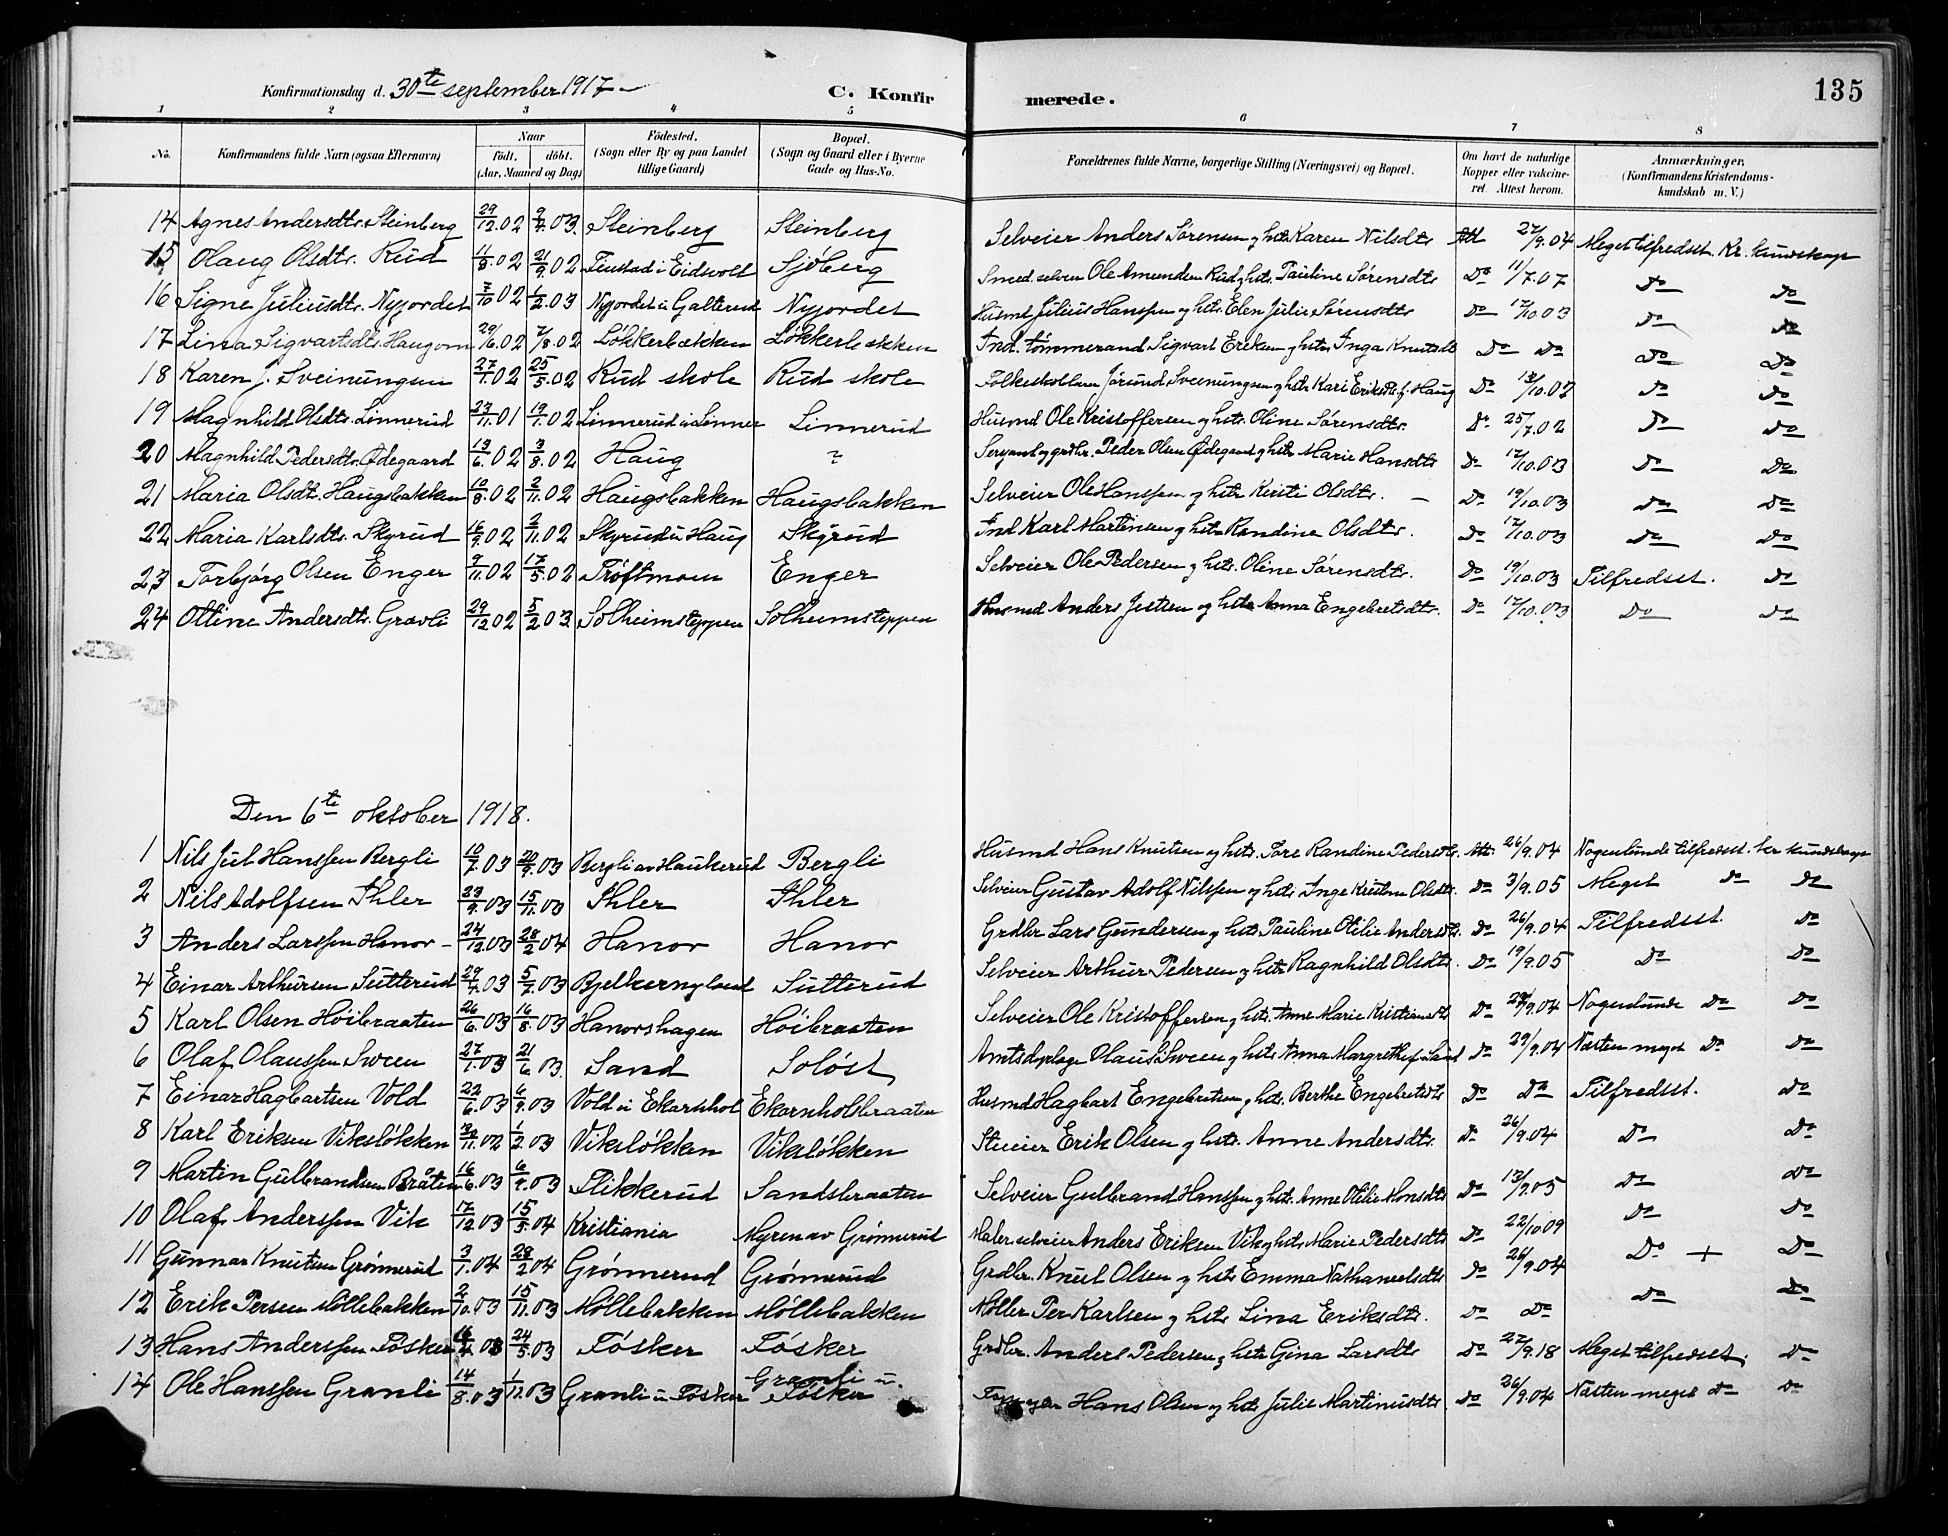 135
Konfirmationsdag d. 30te september 1917
C. Konfirmerede.
1 2 3 4 5 6 7 8
No. Konfirmandens fulde Navn (ogsaa Efternavn) Naar født, døbt. (Aar, Maaned og Dag) Fødested. (Sogn eller By og paa Landet tillige Gaard) Bopæl. (Sogn og Gaard eller i Byerne Gade og Hus-No. Forældrenes fulde Navne, borgerlige Stilling (Næringsvei) og Bopæl. Om havt de naturlige Kopper eller vakcineret. Attest herom. Anmærkninger, (Konfirmandens Kristendomskundskab m. V.)
14 Agnes Andersdtr. Steinberg 29/12 02 9/4 03 Steinberg Steinberg Selveier Anders Sørensen og hstr. Karen Nilsdtr. Att 27/9.04 Meget tilfredsst. Kr. kundskap
15 Olaug Olsdtr. Rud 11/8 02 21/9 02 i Eidsvold Sjøberg Smed selveier Ole Amundsen Rud og hstr. Pauline Sørensdtr. Do 11/7.07 Do Do
16 Signe Juliusdt. Nyjordet 7/10 02 1/2 03 Nyjordet u Galterud Nyjordet Husmd Julius Hanssen og hstr. Elen Julie Sørensdtr Do 17/10.03 Do Do
17 Lina Sigvartsdtr. Haugom 29/6 02 7/8 02 Løkkerbækken Løkkerbækken Ind. tømmermand Sigvart Eriksen og hstr. Inga Knutsdt Do Do Do Do
18 Karen J. Sveinungsen 27/1 02 25/5 02 Rud skole Rud skole Folkeskollærer Jørund Sveinungsen og hstr. Kari Eriksdtr. f. Haug Do 18/10.02 Do Do
19 Magnhild Olsdtr. Linnerud 27/11 01 19/1 02 Linnerud u Linner Linnerud Husmd Ole Kristoffersen og hstr. Oline Sørensdtr. Do 25/7.02 Do Do
20 Magnhild Pedersdtr. Ødegaard 13/6 02 3/8 02 Haug ? Sersjant og grdbr. Peder Olsen Ødegaard og hstr Marie Hansdtr Do 17/10.03 Do Do
21 Maria Olsdt. Haugsbakken 10/8 02 2/11 02 Haugsbakken Haugsbakken Selveier Ole Hanssen og hstr Kersti Olsdtr. Do 19/10.03 Do Do
22 Maria Karlsdtr. Skyrud 16/9 02 2/11 02 Skyrud u Haug Skyrud Ind Karl Martinsen og hstr Randine Olsdtr. Do 17/10.03 Do Do
23 Torbjørg Olsen Enger 9/11 02 17/5 02 Trøftmoen Enger Selveier Ole Pedersen og hstr. Oline Sørensdtr. Do 19/10.03 Tilfredsst. Do
24 Ottine Andersdtr. Gravli 29/12 02 5/2 03 Solheimsteppen Solheimsteppen Husmd Anders Justsen og hstr Anna Engebretsdtr. Do 17/10.03 Do Do
Den 6te oktober 1918.
1 Nils Jul Hanssen Bergli 10/7 03 20/9 03 Bergli av Haukerud Bergli Husmd Hans Knutsen og hstr. Tore Randine Pedersdtr. Att. 26/9.04 Nogenlunde tilfredsst. kr kundskap
2 Nils Adolfsen Ihler 23/9 03 15/11 03 Ihler Ihler Selveier Gustav Adolf Nilssen og hstr Inge Kristine Olsdtr. Do 3/9.05 Meget Do Do
3 Anders Larssen Hanor 24/12 03 28/2 04 Hanor Hanor Grdbr Lars Gundersen og hstr Pauline Otilie Andersdtr. Do 26/9.04 Tilfredsst. Do
4 Einar Arthursen Sutterud 29/4 03 5/7 03 Bjelkerngland Sutterud Selveier Arthur Pedersen og hstr Ragnhild Olsdtr. Do 19/9.05 Do Do
5 Karl Olsen Høibraaten 26/6 03 16/8 03 Hanorshagen Høibraaten Selveier Ole Kristoffersen og hstr. Anne Marie Kristiansdtr Do 29/9.04 Nogenlunde Do Do
6 Olaf Olaussen Sween 27/1 03 21/6 03 Sand Soløst Olaus Sween og hstr Anna Margrethe f. Do 29/9.04 Næsten meget Do Do
7 Einar Hagbartsen Vold 22/6 03 6/9 03 Vold u Ekornhol Ekornholsbraaten Husmd Hagbart Engebretsen og hstr. Berthe Engebretsdtr Do Do Tilfredsst. Do
8 Karl Eriksen Viksløkken 30/11 02 1/2 03 Viksløkken Viksløkken Erik Olsen og hstr. Anne Andersdtr. Do 26/9.04 Do Do
9 Martin Gulbrandsen Bråten 16/6 03 6/9 03 Slikkerud Sandsbraaten Selveier Gulbrand Hanssen og hstr. Anne Otilie Monsdtr Do 13/9.05 Do Do
10 Olaf Anderssen Vik 17/12 03 15/5 04 Kristiania Myren av Grønnerud Maler selveier Anders Eriksen Vik og hstr. Marie Pedersdtr Do 22/10 09 Do Do
11 Gunnar Knutsen Grønnerud 3/1 04 28/2 04 Grønnerud Grønnerud Grdbr. Knut Olsen og hstr Emma Nathanaelsdtr Do 26/9.04 Do + Do
12 Erik Persen Møllebakken 2/10 03 15/11 03 Møllebakken Møllebakken Møller Per Karlsen og hstr Lina Eriksdtr. Do Do Do Do
13 Hans Anderssen Tøsker 16/4 03 24/5 03 Tøsker Tøsker Grdbr. Anders Pedersen og hstr Gina Larsdtr Do 27/9.18 Meget tilfredsst. Do
14 Ole Hanssen Granli 14/8 03 1/11 03 Granli u Tøsker Granli u. Tøsker Hans Olsen og hstr Julie Martinusdtr Do 26/9.04 Næsten meget Do Do